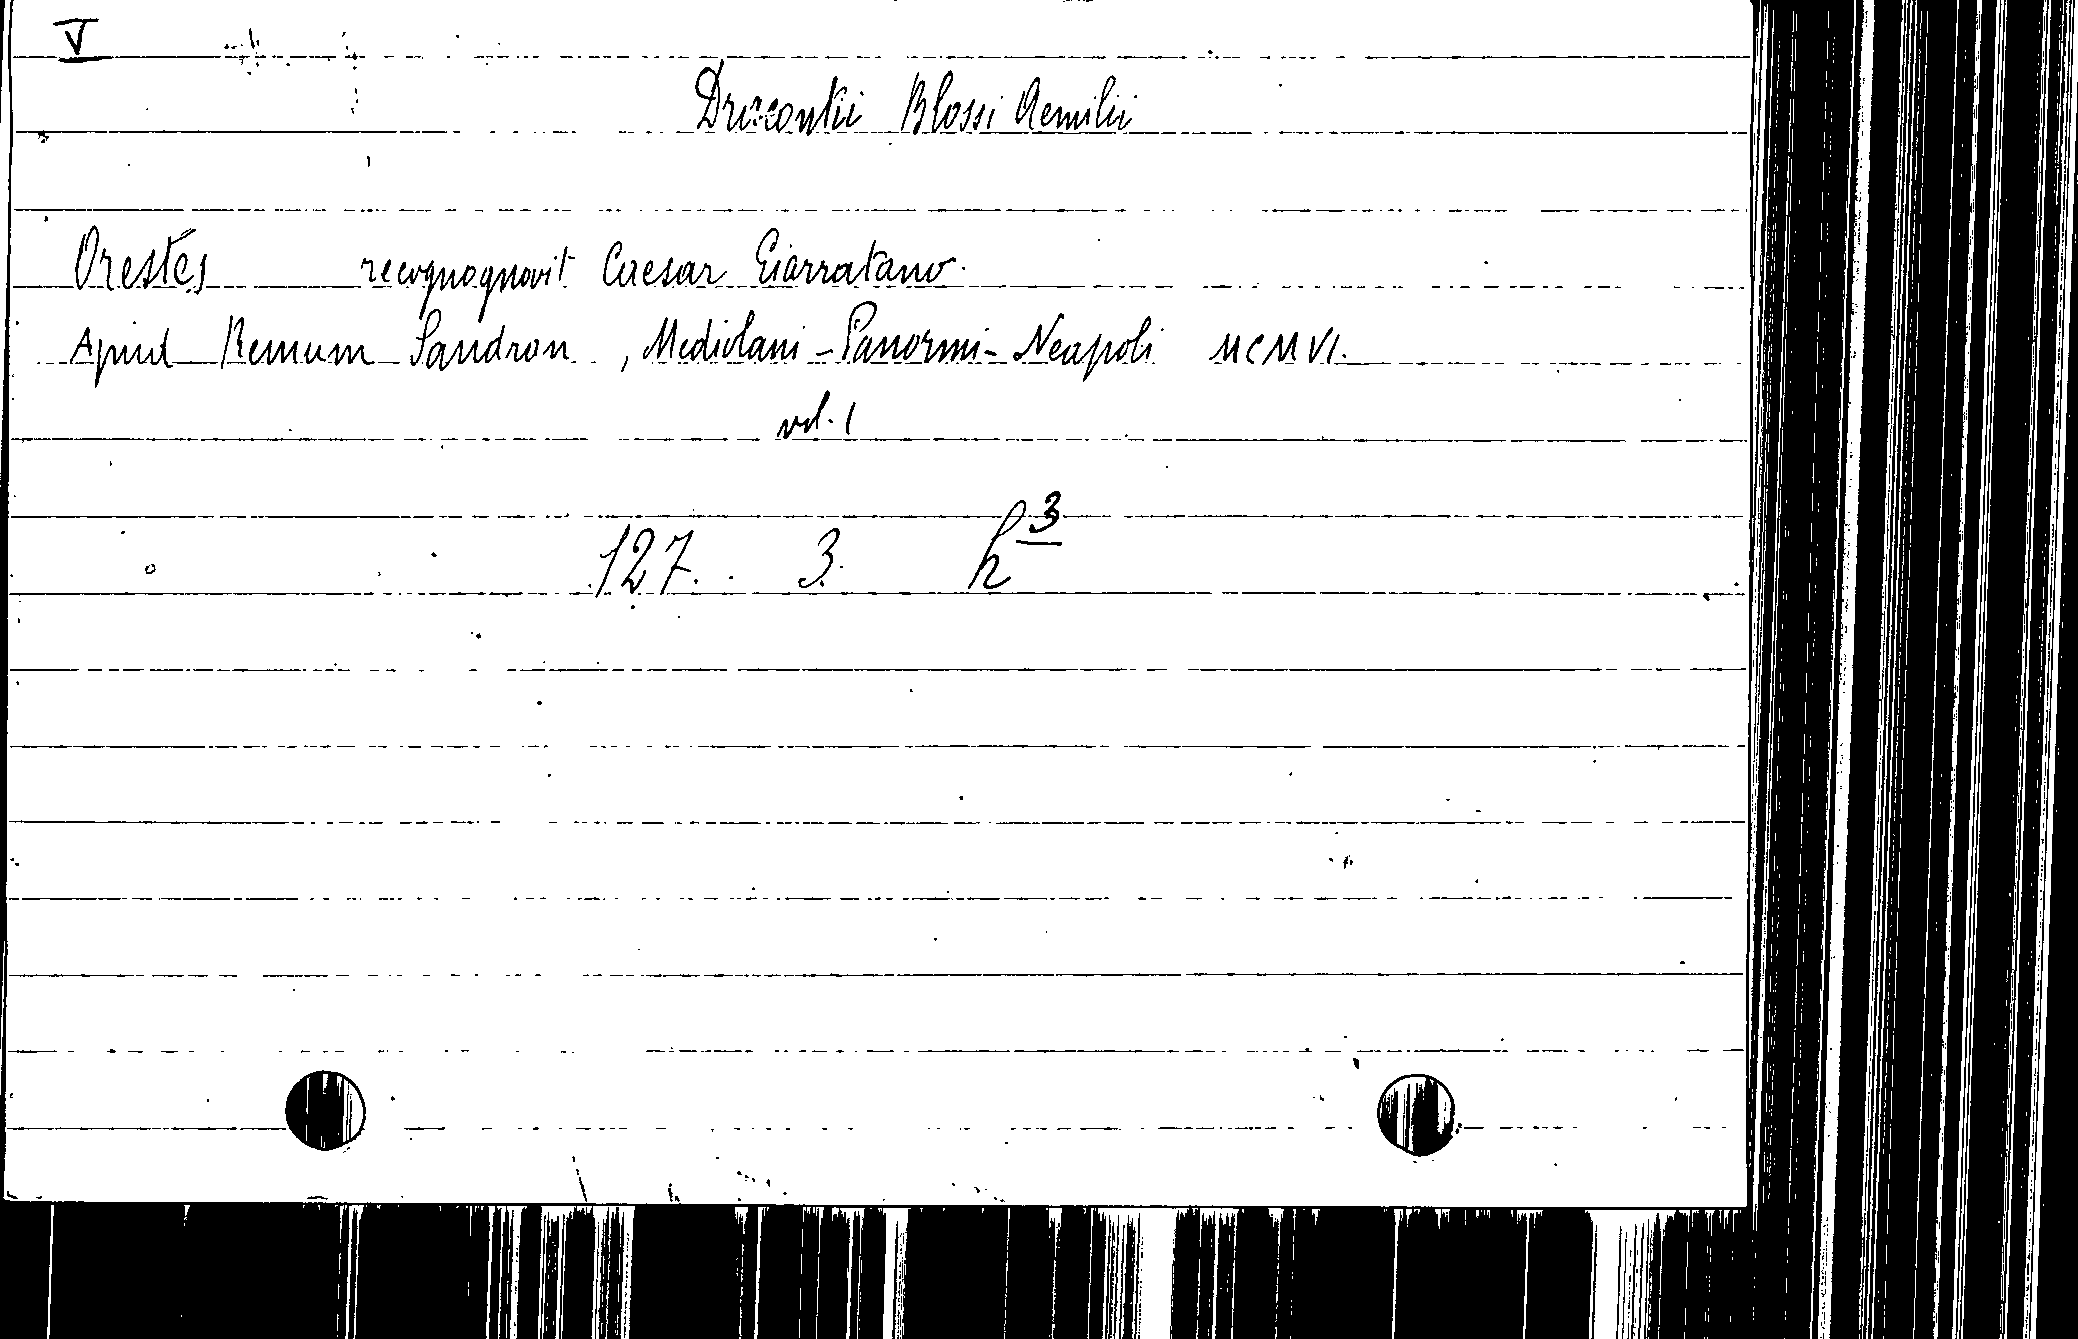 V
Dracontii Blossi Aemilii
Orestes recognognovit Caesar Giarratano.
Apud Remum Sandron, Mediolani - Panormi - Neapoli MCMVI.
vol. 1
127. 3. h³